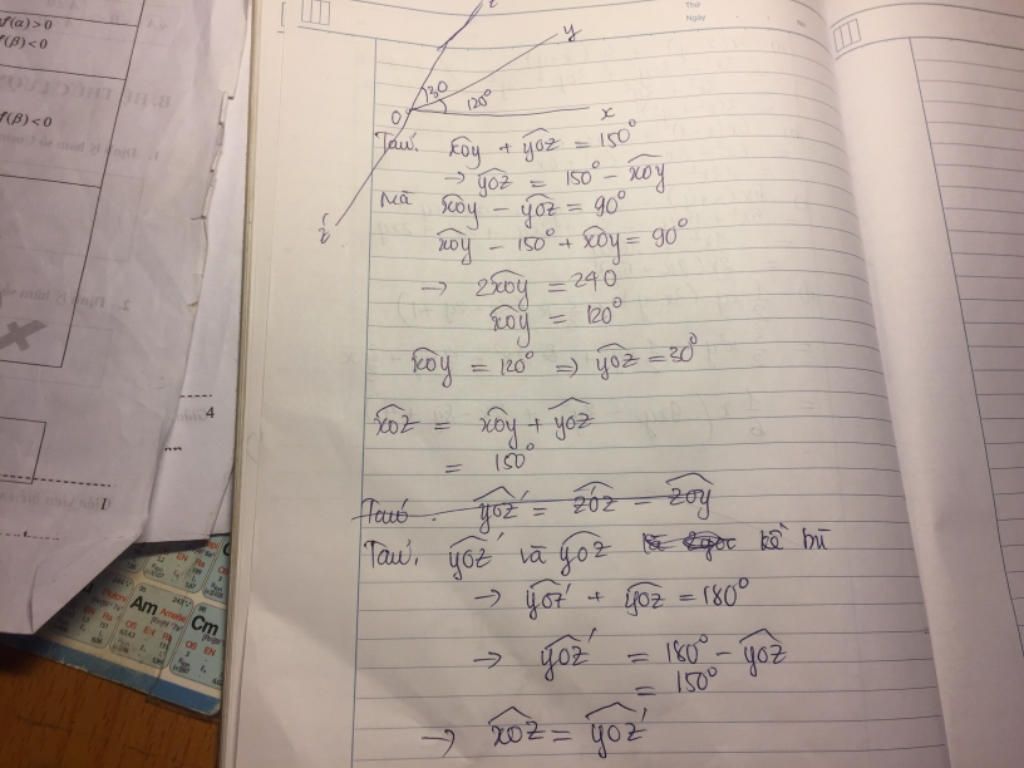 f(α)>0
f(β)<0
f(β)<0
4
Thứ
Ngày
z
y
30
120°
O
x
z'
Ta có: xOy + yOz = 150°
→ yOz = 150° − xOy
mà xOy − yOz = 90°
xOy − 150° + xOy = 90°
→ 2xOy = 240
xOy = 120°
xOy = 120° => yOz = 30°
xOz = xOy + yOz
= 150°
Ta có: yOz' = zOz' − zOy
Ta có: yOz' và yOz kề bù
→ yOz' + yOz = 180°
→ yOz' = 180° − yOz
= 150°
→ xOz = yOz'
Am
Cm